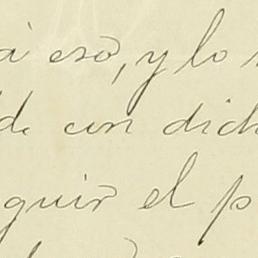 á eso, y lo
de con dich
guir el p